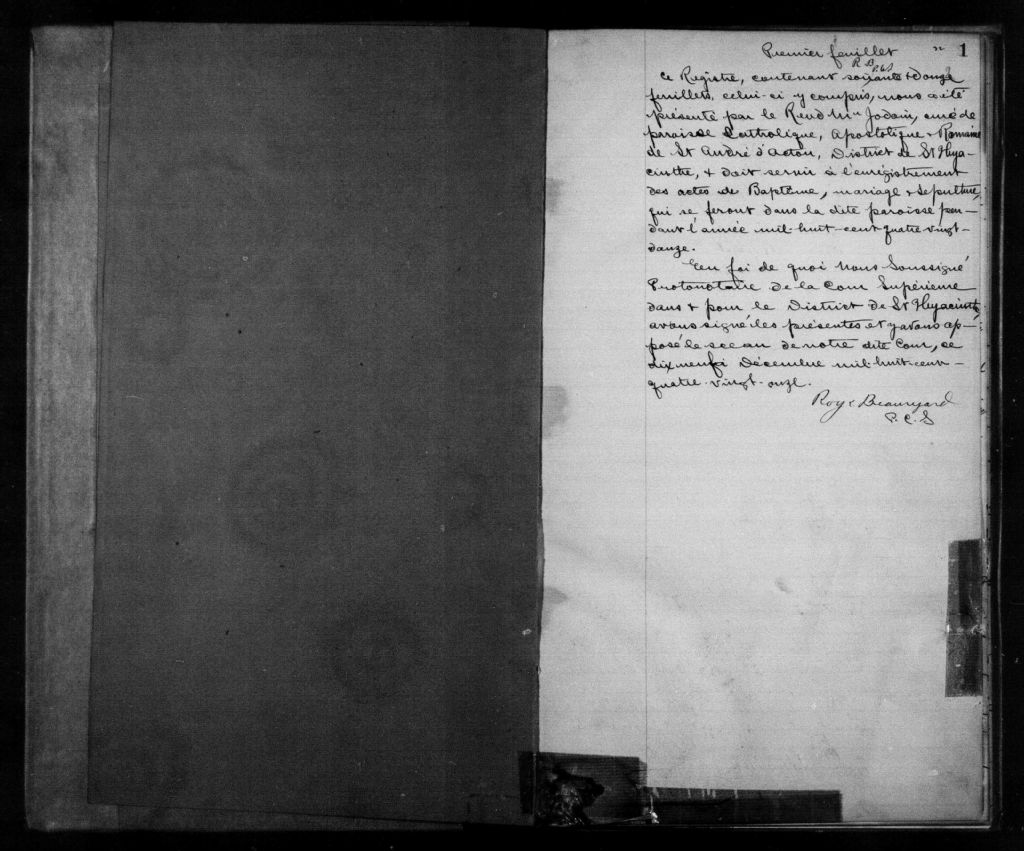 Premier feuillet
n 1
R. B. P.C.S
Ce Registre, contenant soixante & douze
feuillets, celui-ci y compris, nous a été
présenté par le Revd Mr Jodoin, curé de
paroisse Catholique, Apostolique & Romaine
de St André d'Acton, District de St Hya-
cinthe, & doit servir à l'enregistrement
des actes de Baptême, mariage & Sépulture,
qui se feront dans la dite paroisse pen-
dant l'année mil-huit-cent-quatre-vingt-
douze.
En foi de quoi Nous Soussigné
Protonotaire de la Cour Supérieure
dans & pour le District de St Hyacinthe
avons signé les présentes et y avons ap-
posé le sceau de notre dite Cour, ce
dix neuf Décembre mil-huit-cent-
quatre-vingt-onze.
Roy & Beauregard
P. C. S